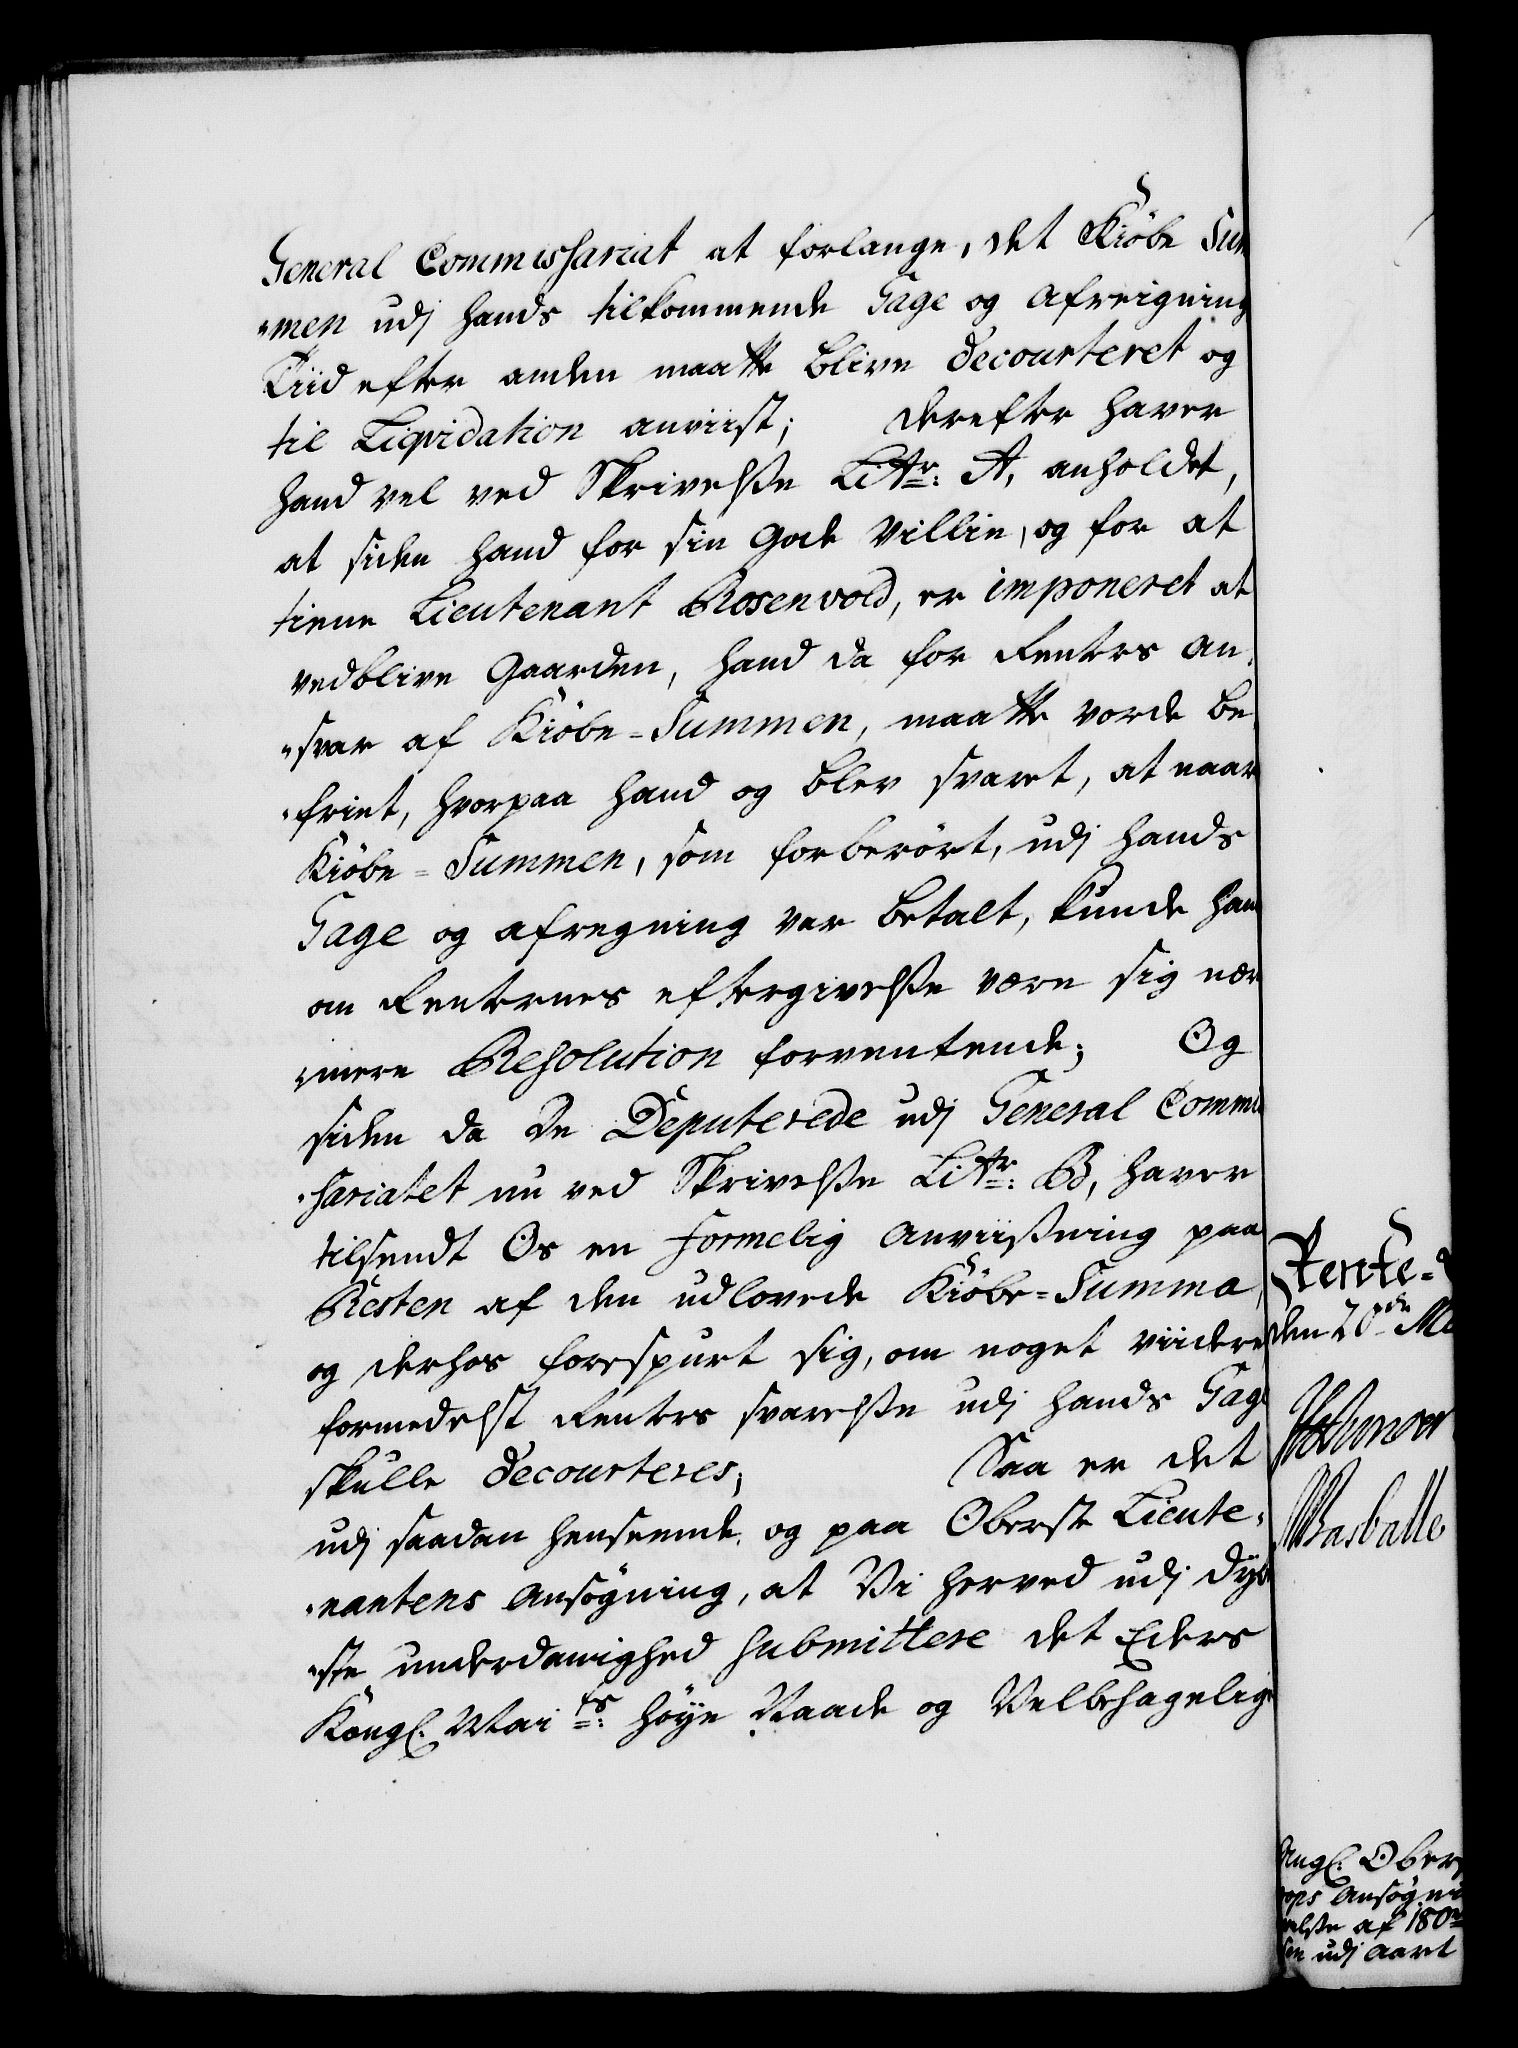 General Commissariat at forlange, det Kiöbe Sum
"men udj hands tilkommende Gage og afreigning
Tiid efter anden maatte blive decourteret og
til Liqvidation anviist; derefter haver
hand vel ved Skrivelsse Littr: A, anholdet,
at siden hand for sin gode Villie, og for at
tiene Lieutenant Rosenvold, er imponeret at
vedblive Gaarden, hand da for Renters an,
"svar af Kiöbe=Summen, maatte vorde be
"friet, hvorpaa hand og blev svaret, at naar
Kiöbe=Summen, som forberört, udj hands
Gage og afregning var betalt, kunde hand
om Renternes eftergivelsse være sig nær
"mere Resolution forventende; Og
siden da De Deputerede udj General Commis
"sariatet nu ved Skrivelsse Littr: B, haver
tilsendt Os en formelig anviissning paa
Resten af den udlovede Kiöbe=Summa,
og derhos forespurt sig, om noget viidere
formedelst Renters svarelsse udj hands Gage
skulle decourteres; Saa er det
udj saadan henseende, og paa Oberste Lieute,
"nantens ansøgning, at Vi herved udj dyb
"ste underdanighed submittere det Eders
Kongl. Mai ts: höye Naade og Velbehagelig
Rente=
den 20de
Basballe
Kongl: Ober
ops ansøgni
else af 180
udj aart